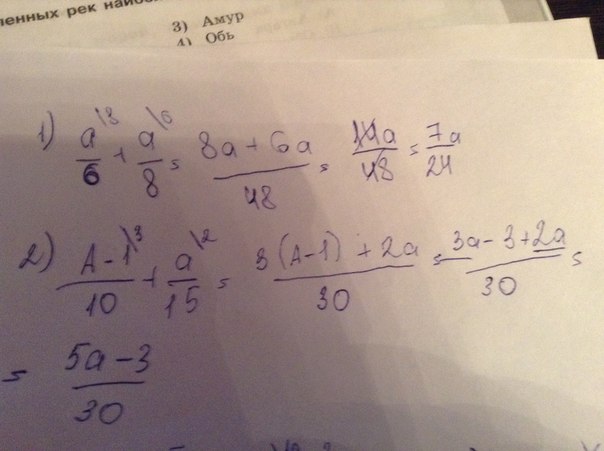 ленных рек наибо
3) Амур
4) Обь
1) a\8/6 + a\6/8 = 8a + 6a/48 = 14a/48 = 7a/24
2) A - 1\3/10 + a\2/15 = 3(A-1) + 2a/30 = 3a - 3 + 2a/30 =
= 5a - 3/30